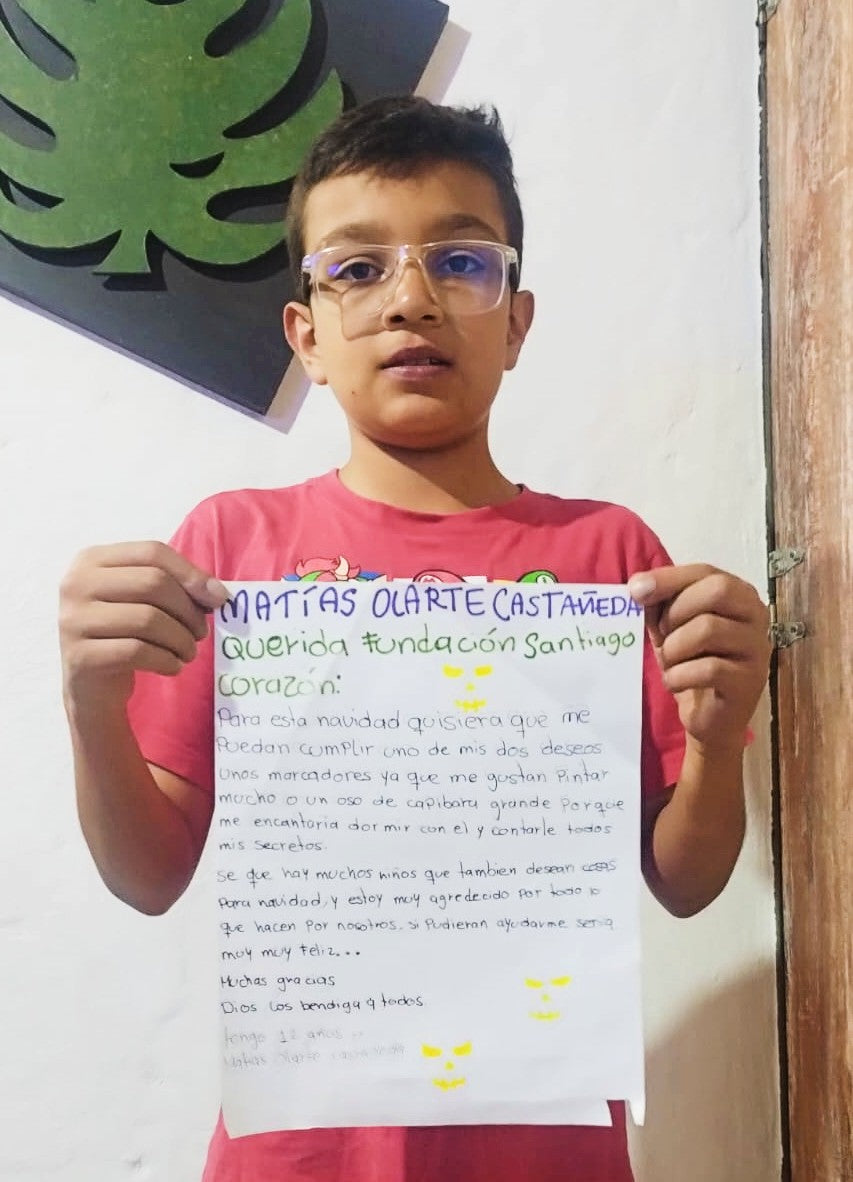 MATÍAS OLARTE CASTAÑEDA
Querida Fundación Santiago
Corazón:
Para esta navidad quisiera que me
Puedan cumplir uno de mis dos deseos
unos marcadores ya que me gustan Pintar
mucho o un oso de capibara grande Porque
me encantaria dormir con el y contarle todos
mis secretos.
se que hay muchos niños que tambien desean cosas
Para navidad, y estoy muy agredecido Por todo lo
que hacen Por nosotros. si Pudieran ayudarme seria
muy muy Feliz...
Muchas gracias
Dios los bendiga a todos.
tengo 12 años
Matias Olarte Castañeda